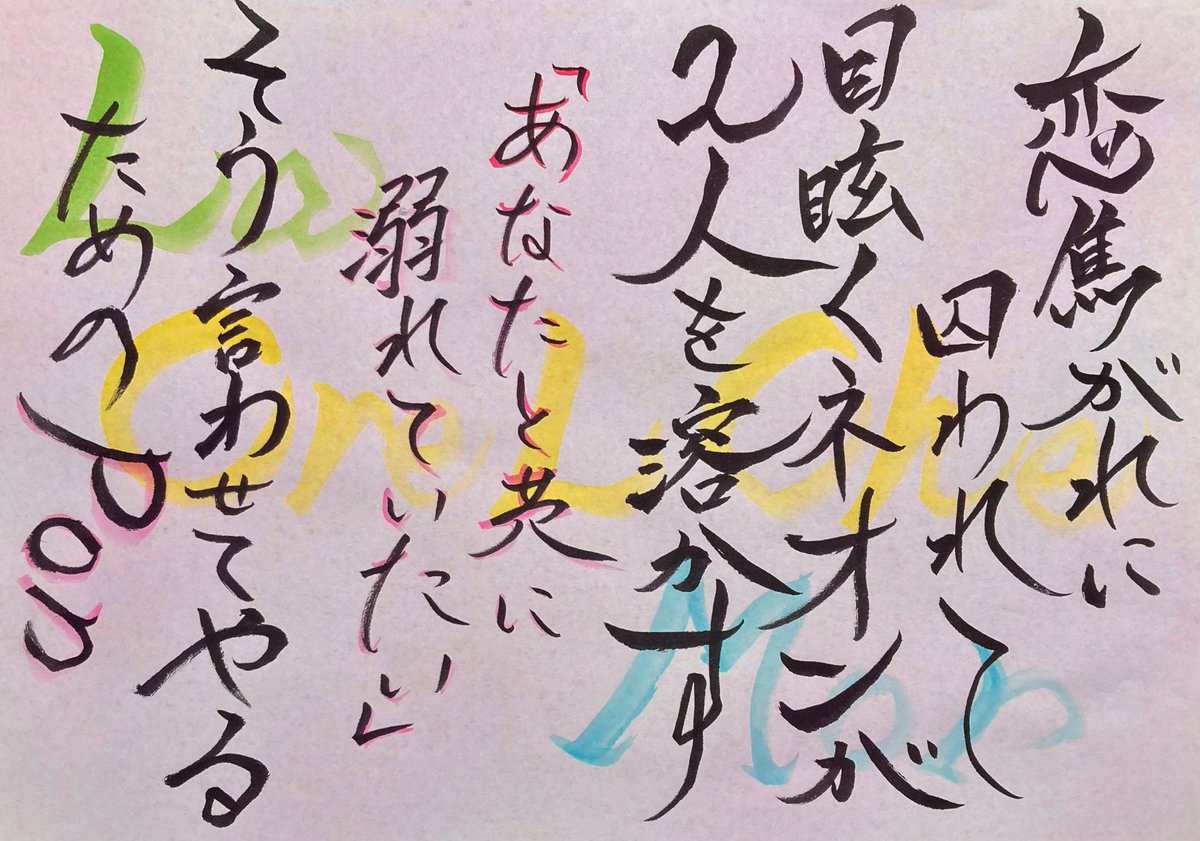 恋焦がれに
囚われて
目眩くネオンが
2人を溶かす
「あなたと共に
溺れていたい」
そう言わせてやる
ための